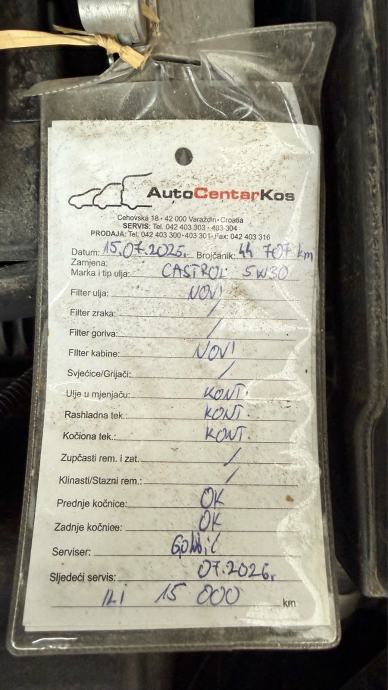 AutoCentarKos
Cehovska 18 • 42 000 Varaždin • Croatia
SERVIS: Tel. 042 403 303 • 403 304
PRODAJA: Tel. 042 403 300 • 403 301 • Fax: 042 403 316
Datum: 15.07.2025. Brojčanik: 44 707 km
Zamjena:
Marka i tip ulja: CASTROL 5W30
Filter ulja: NOVI
Filter zraka: /
Filter goriva: /
FIlter kabine: NOVI
Svjećice/Grijači: /
Ulje u mjenjaču: KONT.
Rashladna tek.: KONT.
Kočiona tek.: KONT.
Zupčasti rem. i zat.: /
Klinasti/Stazni rem.: /
Prednje kočnice: OK
Zadnje kočnice: OK
Serviser:
Sljedeći servis: 07.2026.
ILI 15 000 km